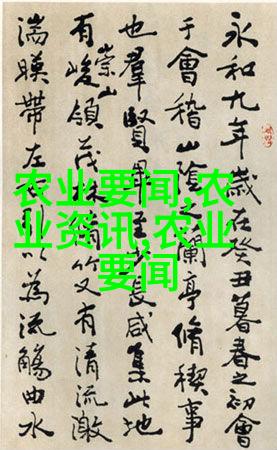 永和九年歲在癸丑暮春之初會
于會稽山陰之蘭亭脩稧事
也羣賢畢至少長咸集此地
有崇山峻領茂林脩竹又有清流激
湍暎帶左右引以為流觴曲水
农业要闻,农
业资讯,农业
要闻